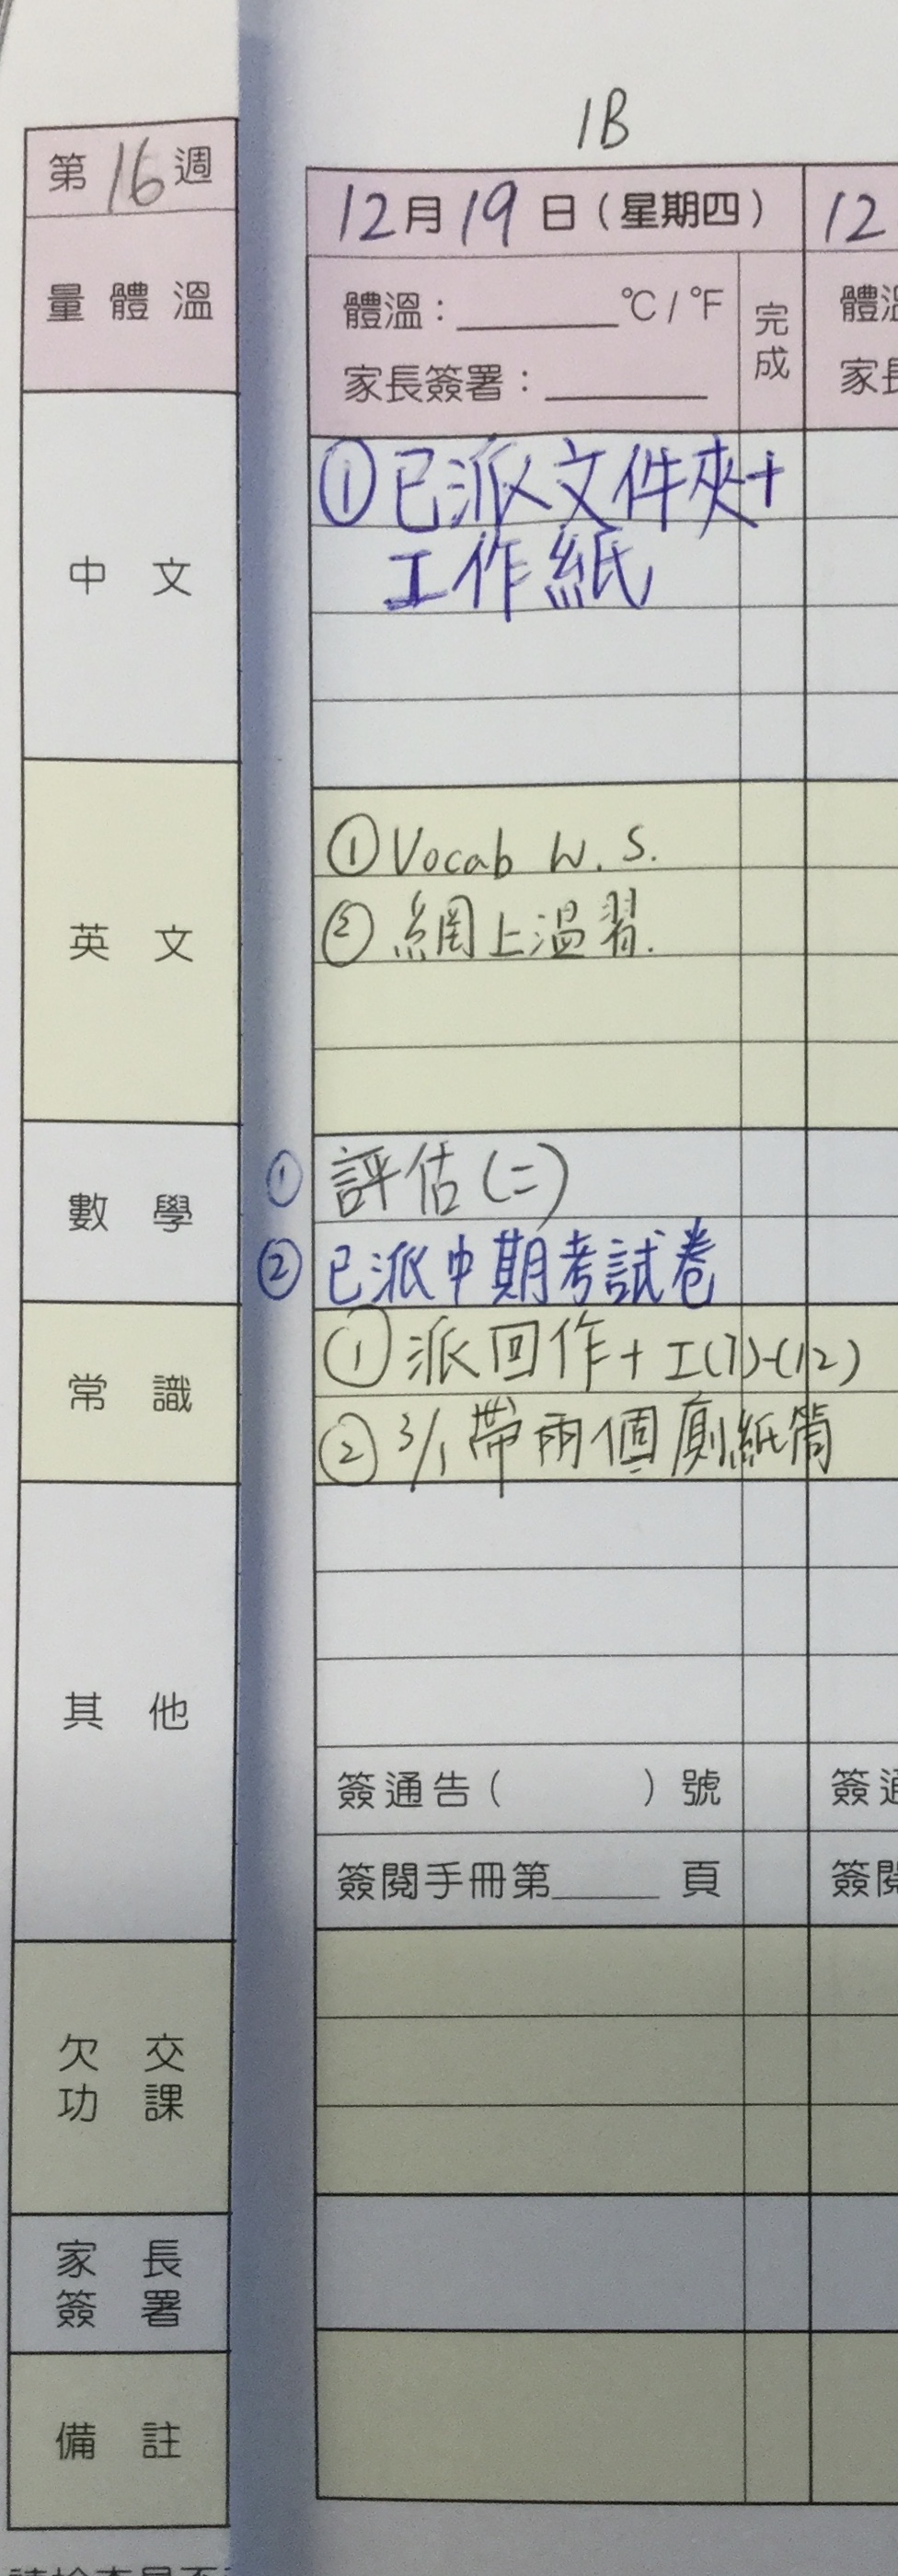 1B
第16週
12月19日(星期四)
12
量體溫
體溫：______°C/°F
完成
體溫
家長簽署：______
家長
中文
①已派文件夾+
工作紙
英文
①Vocab W.S.
②網上溫習.
數學
①評估(二)
②已派中期考試卷
常識
①派回作+工(7)-(12)
②3/1帶兩個廁紙筒
其他
簽通告(　　　)號
簽通
簽閱手冊第____頁
簽閱
欠交
功課
家長
簽署
備註